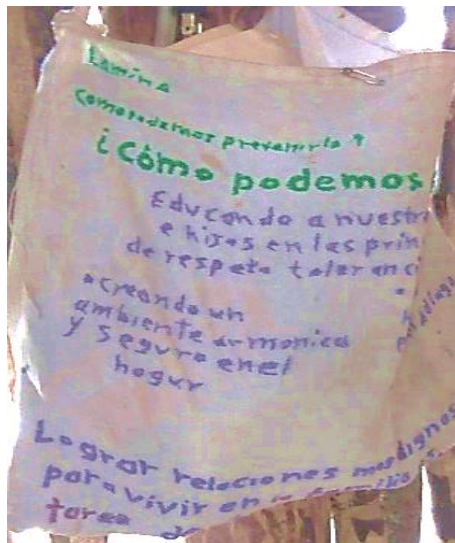 Lamina
Como podemos prevenirlo?
¿Cómo podemos
Educando a nuestr
e hijas en las prin
de respeto toleranci
y
por dialogo
•creando un
ambiente armonica
y seguro en el
hogar
Lograr relaciones mas dignas
para vivir en la familia
tarea de